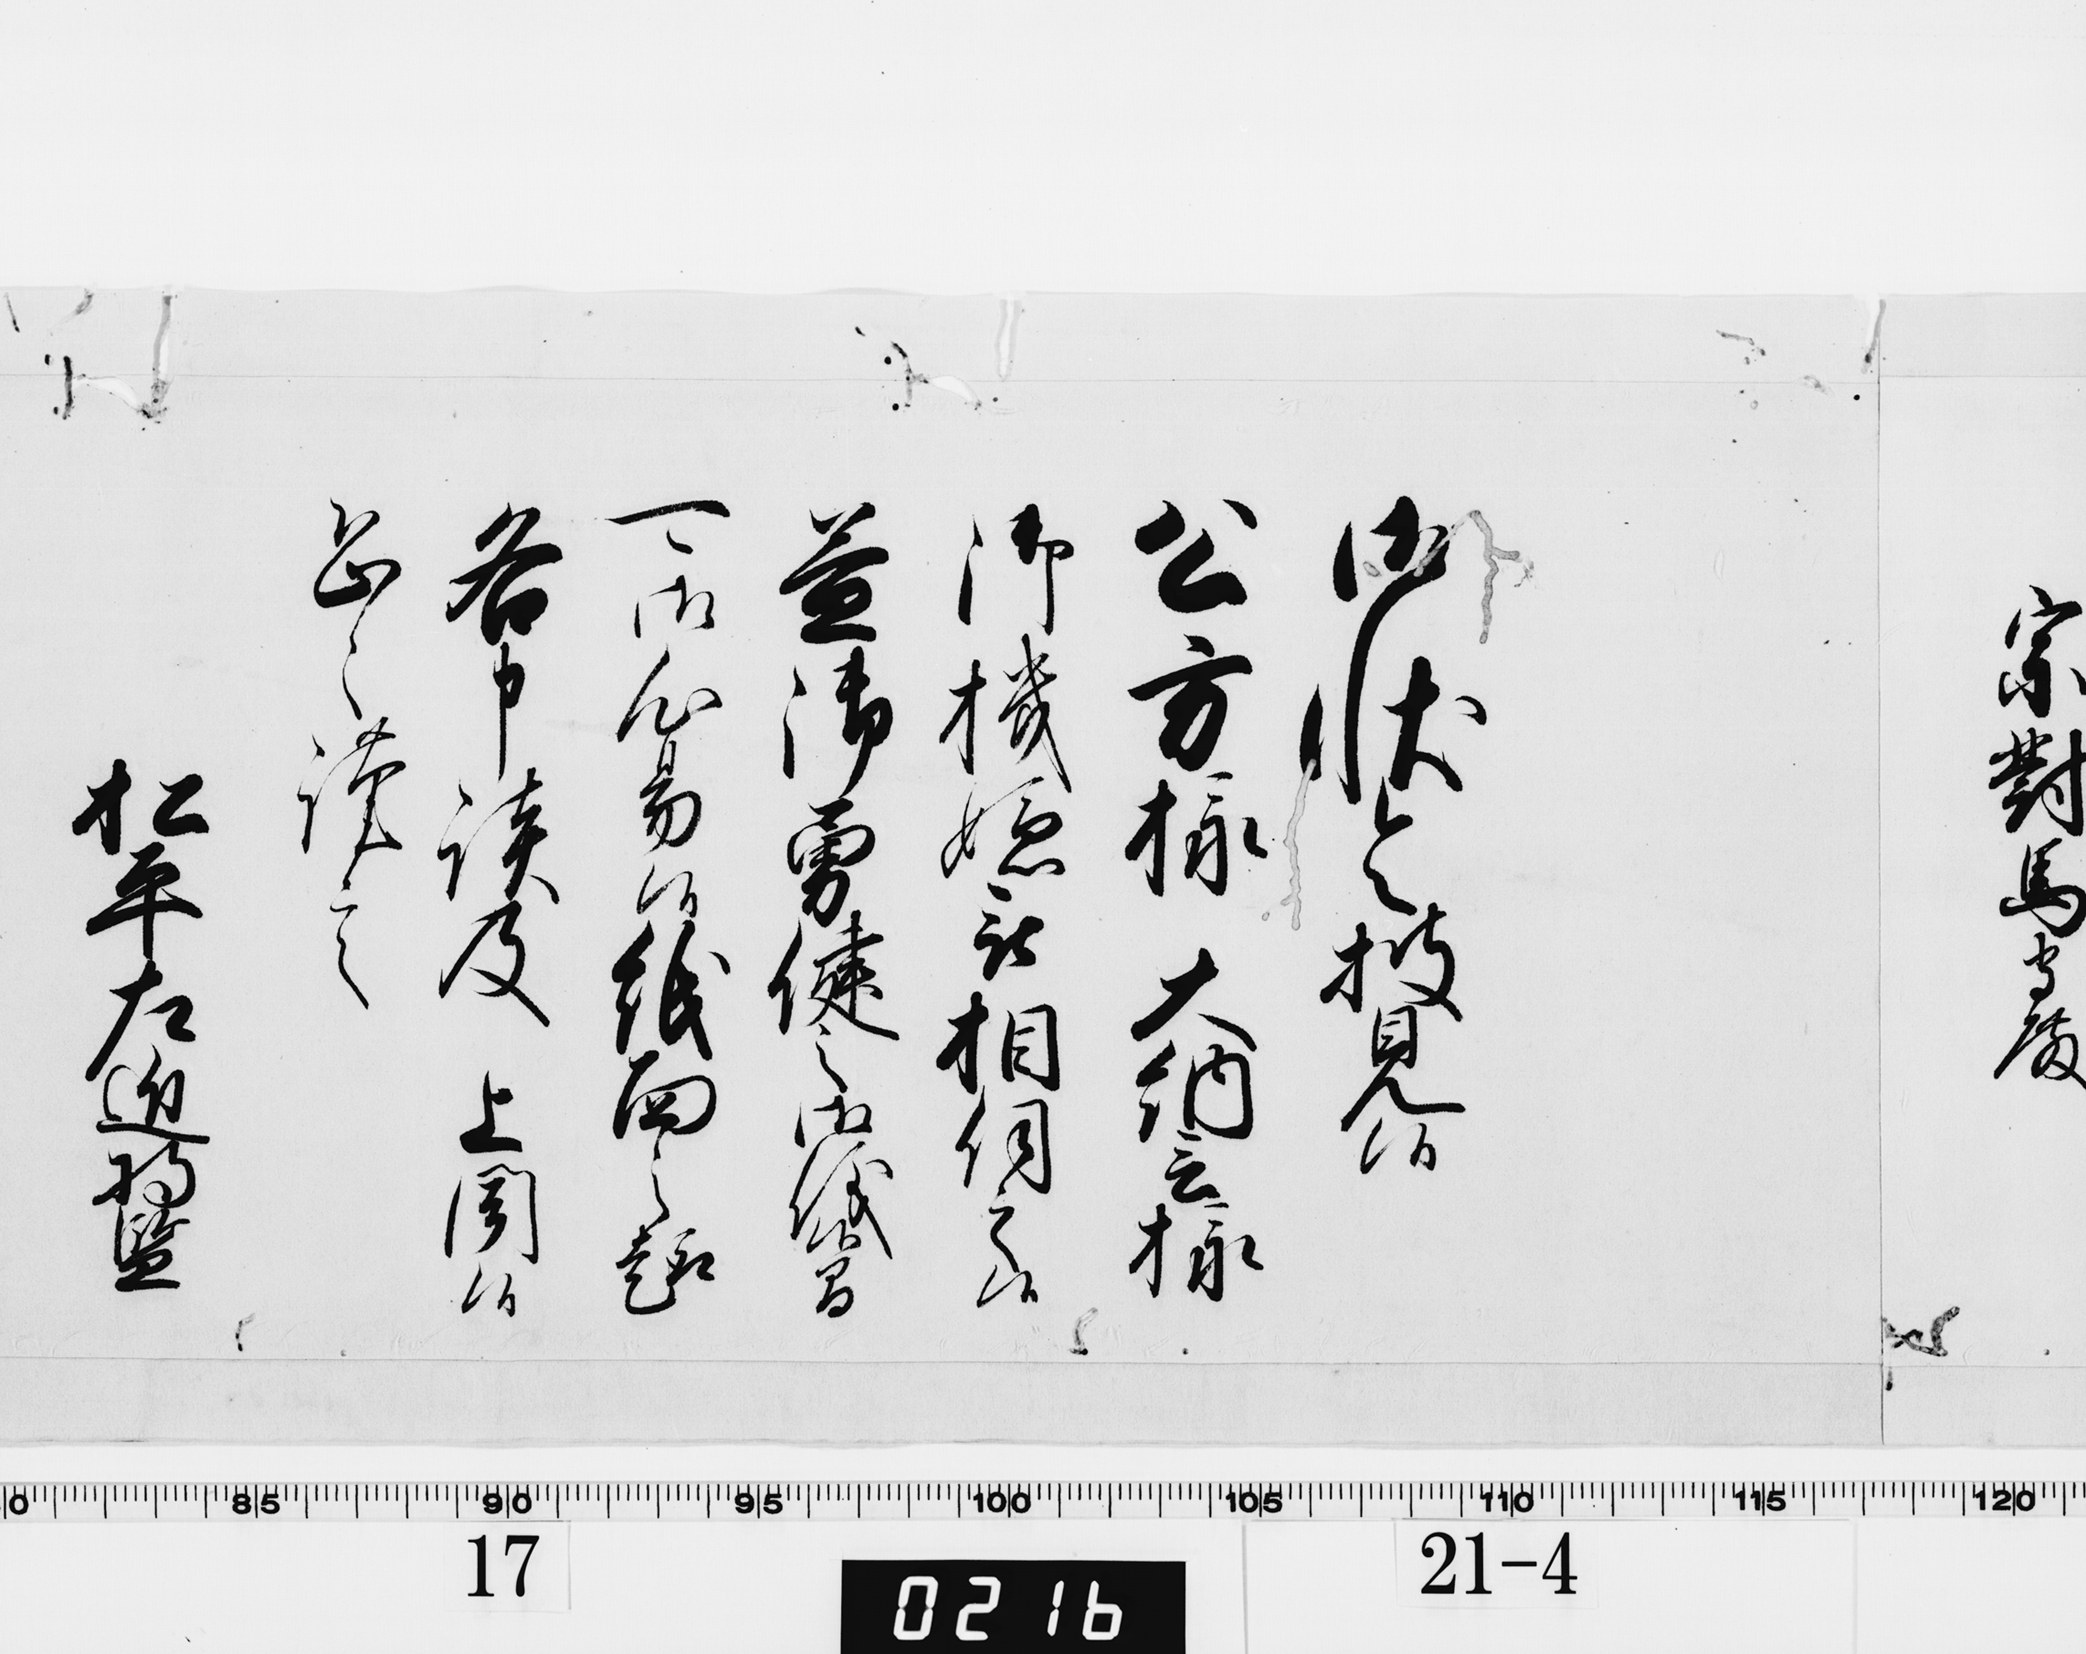 宗對馬守殿
御状令披見候
公方様 大納言様
御機嫌被相伺之候
益御勇健之御儀候間
可御心易候紙面之趣
各申談及 上聞候
恐々謹言
松平左近将監
80 85 90 95 100 105 110 115 120
17
21-4
0216